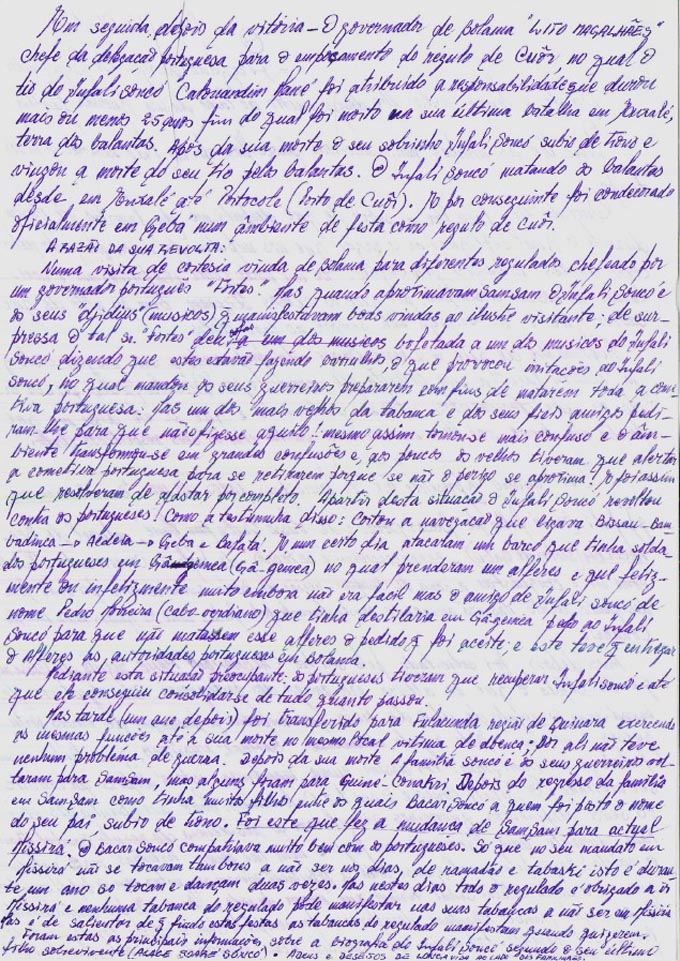 Em seguida, depois da vitória - O governador de Bolama "LUITO MAGALHÃES"
chefe da delegacao portuguesa para o empossamento do regulo de Cuôr no qual o
tio do Infali Soncó Calonandim Mané foi atribuido a responsabilidade que durou
mais ou menos 25 anos fim do qual foi morto na sua última batalha em Enxalé,
terra dos balantas. Após da sua morte o seu sobrinho, Infali Soncó subio de trono e
vingou a morte do seu tio pelos balantas. O Infali Soncó matando os balantas
desde, em Enxalé até Portocole (Porto de Cuôr). E por conseguinte foi condecorado
oficialmente em Geba num âmbiente de festa como regulo de Cuôr.
A RAZÃO DA SUA REVOLTA:
Numa visita de cortesia vinda de Bolama para diferentes regulados, chefeado por
um governador português "Fortes". Mas quando aproximavam Samsam o Infali Soncó e
os seus "djidius" (musicos) q manifestavam boas vindas ao ilustre visitante, de sur-
pressa o tal sr. "Fortes" deu a um dos musicos bofotada a um dos musicos do Infali
Soncó dizendo que estes estavão fazendo barrulhos, o que provocou irritações ao Infali
Soncó, no qual mandou os seus guerreiros prepararem com fins de matarem toda a comi-
tiva portuguesa. Mas um dos mais velhos da tabanca e dos seus fieis amigos pedi-
ram-lhe para que não fizesse aquilo! mesmo assim tornou-se mais confuso e o âm-
biente transformou-se em grandes confusões e, aos poucos os velhos tiveram que alertar
a comitiva portuguesa para se retirarem porque se não o perigo se aproxima! E foi assim
que resolveram de afastar por completo. Apartir desta situacão o Infali Soncó revoltou
contra os portugueses! Como a testimunha disso: Cortou a navegacão que ligava Bissau-Bam-
badinca → Aldeia → Geba e Bafatá. E num certo dia, atacaram um barco que tinha solda-
dos portugueses em Gã-gemea (Gã-gemeá) no qual prenderam um alferes e que feliz-
mente ou infelizmente muito embora não era facil mas o amigo de Infali Soncó de
nome Pedro Moreira (cabo-verdiano) que tinha destilaria em Gã-gemia pediu ao Infali
Soncó para que não matassem esse alferes o pedido q foi aceite, e este teve q entregar
o Alferes às autoridades portugueses em Bolama.
Mediante esta situacão preocupante: os portugueses tiveram que recuperar Infali Soncó e até
que em conseguiu consolidar-se de tudo quanto passou.
Mas tarde (um ano depois) foi transferido para Fulacunda região de Quinara exercendo
as mesmas funcões até à sua morte no mesmo local vitima de doença. Por ali não teve
nenhum problema de guerra. Depois da sua morte a familia Soncó e os seus guerreiros vol-
taram para Samsam, mas alguns foram para Guiné-Conakri. Depois do regresso da familia
em Samsam como tinha muito filho entre os quais Bacar Soncó a quem foi posto o nome
do seu pai, subio de trono. Foi este que fez a mudança de Samsam para actual
Missirá. O Bacar Soncó compativava muito bem com os portugueses. Só que no seu mandato em
Missirá não se tocavam tambores a não ser nos dias, de ramadão e tabaski isto é duran-
te um ano só tocam e dançam duas vezes. Mas nestes dias todo o regulado é obrigado a ir
Missirá e nenhuma tabanca do regulado pode manifestar nas suas tabancas a não ser em Missirá
Mas é de salientar de q findo estas festas as tabancas do regulado manifestam quando quizerem.
Foram estas as principais informacões sobre a biografia do Infali Soncó segundo o seu último
filho sobrevivente (ALAGE SONHO SONCO). ADEUS E DESEJOS DA LONGA VIDA AO LADO DOS FAMILIARES.